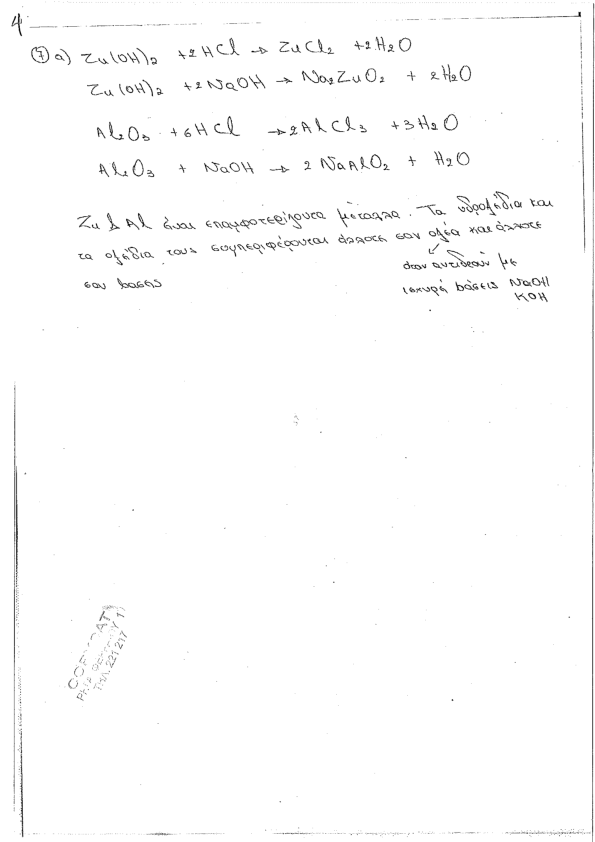 4
⑦ α) Zn(OH)₂ + 2HCl → ZnCl₂ + 2H₂O
Zn(OH)₂ + 2NaOH → Na₂ZnO₂ + 2H₂O
Al₂O₃ + 6HCl → 2AlCl₃ + 3H₂O
Al₂O₃ + NaOH → 2 NaAlO₂ + H₂O
Zn & Al είναι επαμφοτερίζοντα μέταλλα. Τα υδροξείδια και
τα οξείδια τους συμπεριφέρονται άλλοτε σαν οξέα και άλλοτε
σαν βάσεις
όταν αντιδρούν με
ισχυρή βάσεις NaOH
KOH
ΤΗΛ. 221 217